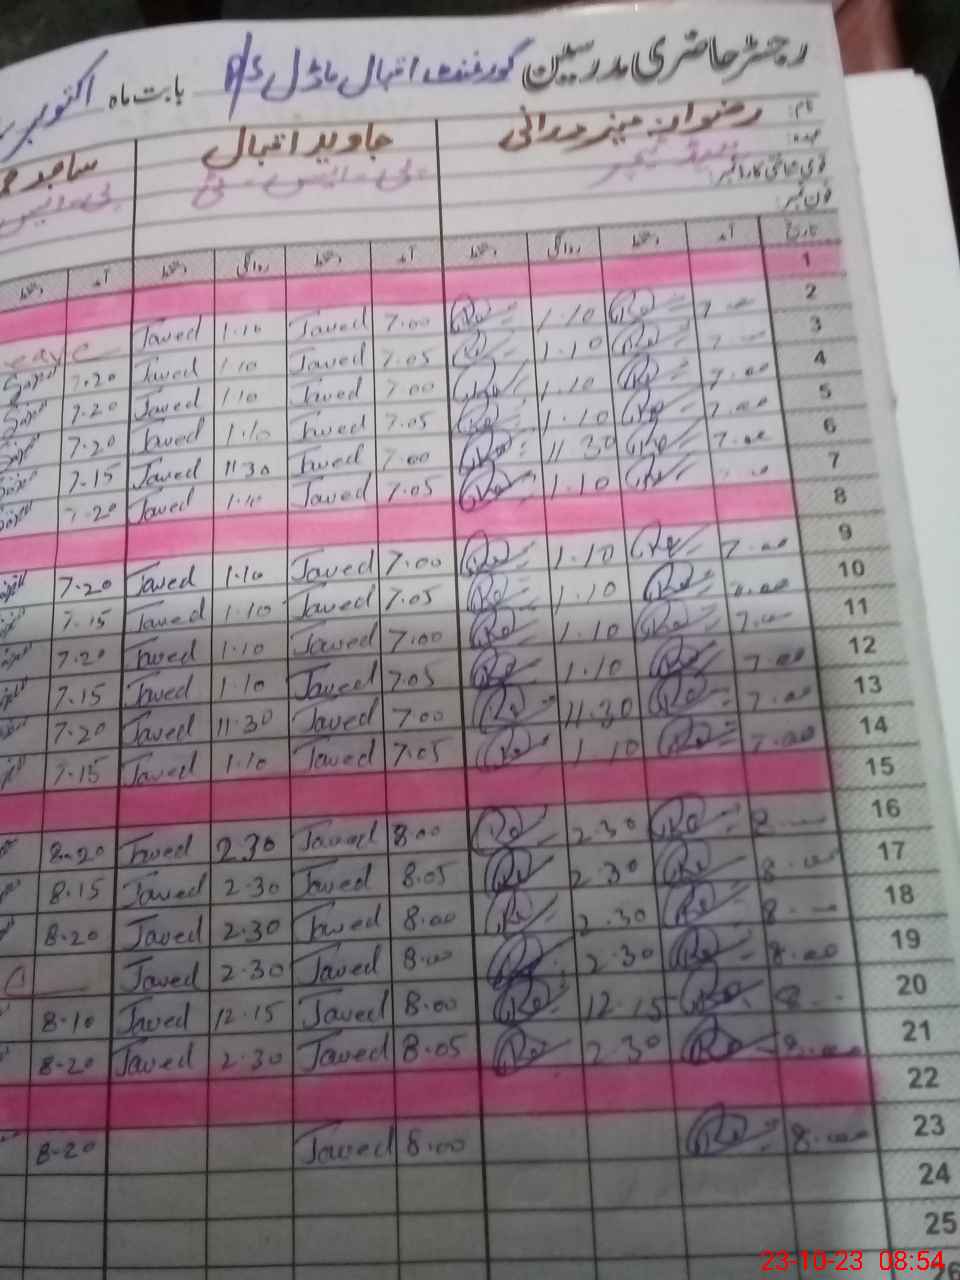 رجسٹر حاضری مدرسین گورنمنٹ اقبال ماڈل P/S بابت ماہ اکتوبر
نام: رضوانہ جاوید اقبال ساجد
عہدہ: ہیڈ ٹیچر پی-ایس-ٹی پی-ایس
قومی شناختی کارڈ نمبر:
فون نمبر:
تاریخ آمد دستخط روانگی دستخط آمد دستخط روانگی دستخط آمد دستخط
1
2 7.00 1.10 7.00 Javed 1.10 Javed
3 1.10 7.05 Javed 1.10 Javed 7.20
4 7.00 1.10 7.00 Javed 1.10 Javed 7.20
5 7.00 1.10 7.05 Javed 1.10 Javed 7.20
6 7.00 11.30 7.00 Javed 11.30 Javed 7.15
7 1.10 7.05 Javed 1.10 Javed 7.20
8
9 7.00 1.10 7.00 Javed 1.10 Javed 7.20
10 7.00 1.10 7.05 Javed 1.10 Javed 7.15
11 7.00 1.10 7.00 Javed 1.10 Javed 7.20
12 7.00 1.10 7.05 Javed 1.10 Javed 7.15
13 7.00 11.30 7.00 Javed 11.30 Javed 7.20
14 7.00 1.10 7.05 Javed 1.10 Javed 7.15
15
16 8 2.30 8.00 Javed 2.30 Javed 8.20
17 8.00 2.30 8.05 Javed 2.30 Javed 8.15
18 8 2.30 8.00 Javed 2.30 Javed 8.20
19 8.00 2.30 8.00 Javed 2.30 Javed
20 8 12.15 8.00 Javed 12.15 Javed 8.10
21 8.00 2.30 8.05 Javed 2.30 Javed 8.20
22
23 8.00 8.00 Javed 8.20
24
25
26
23-10-23 08:54